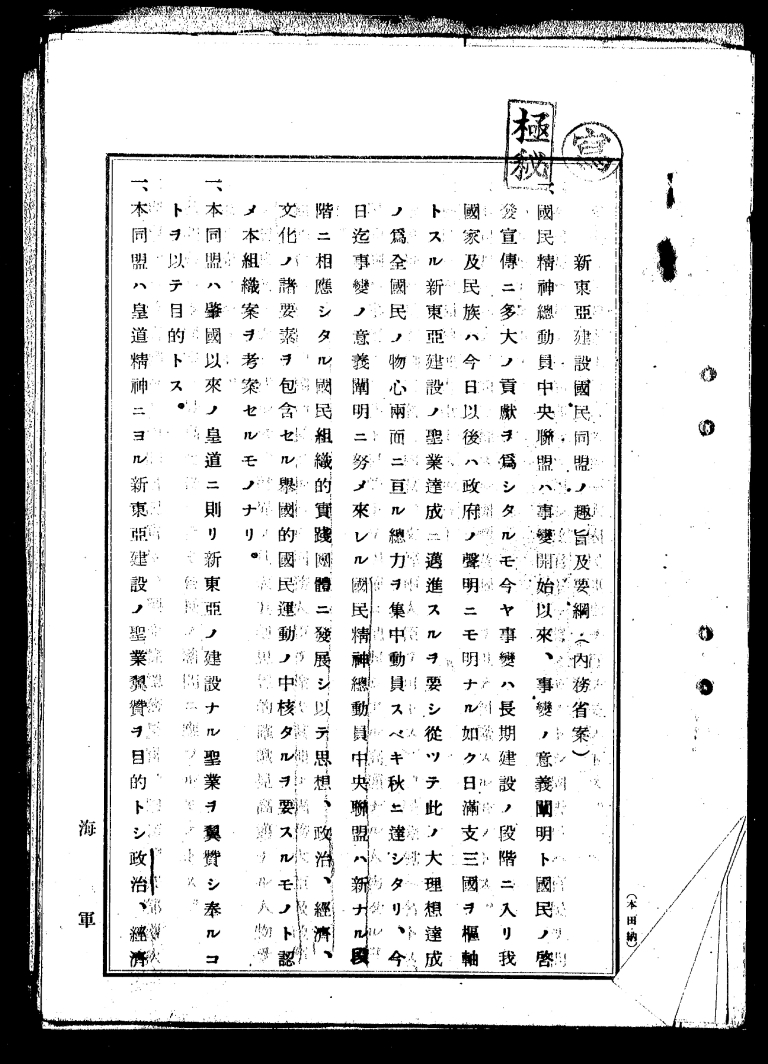 極秘
寫
新東亞建設國民同盟ノ趣旨及要綱(內務省案)
一、國民精神總動員中央聯盟ハ事變開始以來、事變ノ意義闡明ト國民ノ啓
發宣傳ニ多大ノ貢獻ヲ爲シタルモ今ヤ事變ハ長期建設ノ段階ニ入リ我
國家及民族ハ今日以後ハ政府ノ聲明ニモ明ナル如ク日滿支三國ヲ樞軸
トスル新東亞建設ノ聖業達成ニ邁進スルヲ要シ從ツテ此ノ大理想達成
ノ爲全國民ノ物心兩面ニ亘ル總力ヲ集中動員スベキ秋ニ達シタリ、今
日迄事變ノ意義闡明ニ努メ來レル國民精神總動員中央聯盟ハ新ナル段
階ニ相應シタル國民組織的實踐團體ニ發展シ以テ思想、政治、經濟、
文化ノ諸要素ヲ包含セル擧國的國民運動ノ中核タルヲ要スルモノト認
メ本組織案ヲ考案セルモノナリ。
一、本同盟ハ肇國以來ノ皇道ニ則リ新東亞ノ建設ナル聖業ヲ翼贊シ奉ルコ
トヲ以テ目的トス。
一、本同盟ハ皇道精神ニヨル新東亞建設ノ聖業翼贊ヲ目的トシ政治、經濟
海軍
(本田納)